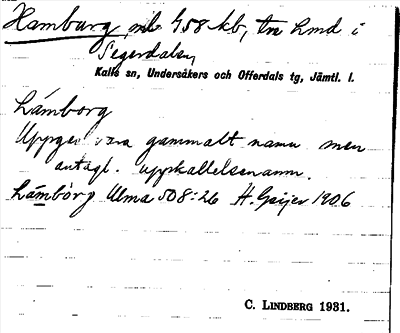 Hamburg, nb 458 kb, tre hmd i
Segerdalen,
Kalls sn, Undersåkers och Offerdals tg, Jämtl. l.
hámborg
Uppges vara gammalt namn men
antagl. uppkallelsenamn.
hámbórg Ulma 508:26 H. Geijer 1906
C. LINDBERG 1931.